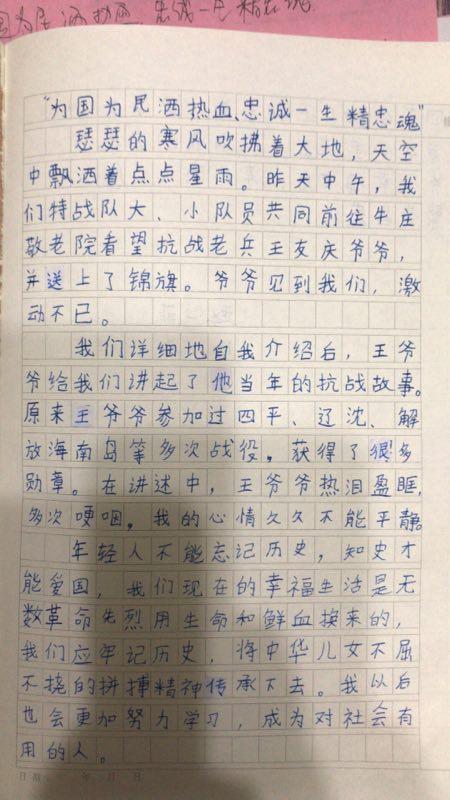 国为民洒热血 忠诚一生精忠魂
“为国为民洒热血、忠诚一生精忠魂”
瑟瑟的寒风吹拂着大地，天空
中飘洒着点点星雨。昨天中午，我
们特战队大、小队员共同前往牛庄
敬老院看望抗战老兵王友庆爷爷，
并送上了锦旗。爷爷见到我们，激
动不已。
我们详细地自我介绍后，王爷
爷给我们讲起了他当年的抗战故事。
原来王爷爷参加过四平、辽沈、解
放海南岛等多次战役，获得了很多
勋章。在讲述中，王爷爷热泪盈眶，
多次哽咽，我的心情久久不能平静。
年轻人不能忘记历史，知史才
能爱国，我们现在的幸福生活是无
数革命先烈用生命和鲜血换来的，
我们应牢记历史，将中华儿女不屈
不挠的拼搏精神传承下去。我以后
也会更加努力学习，成为对社会有
用的人。
日期 年 月 日